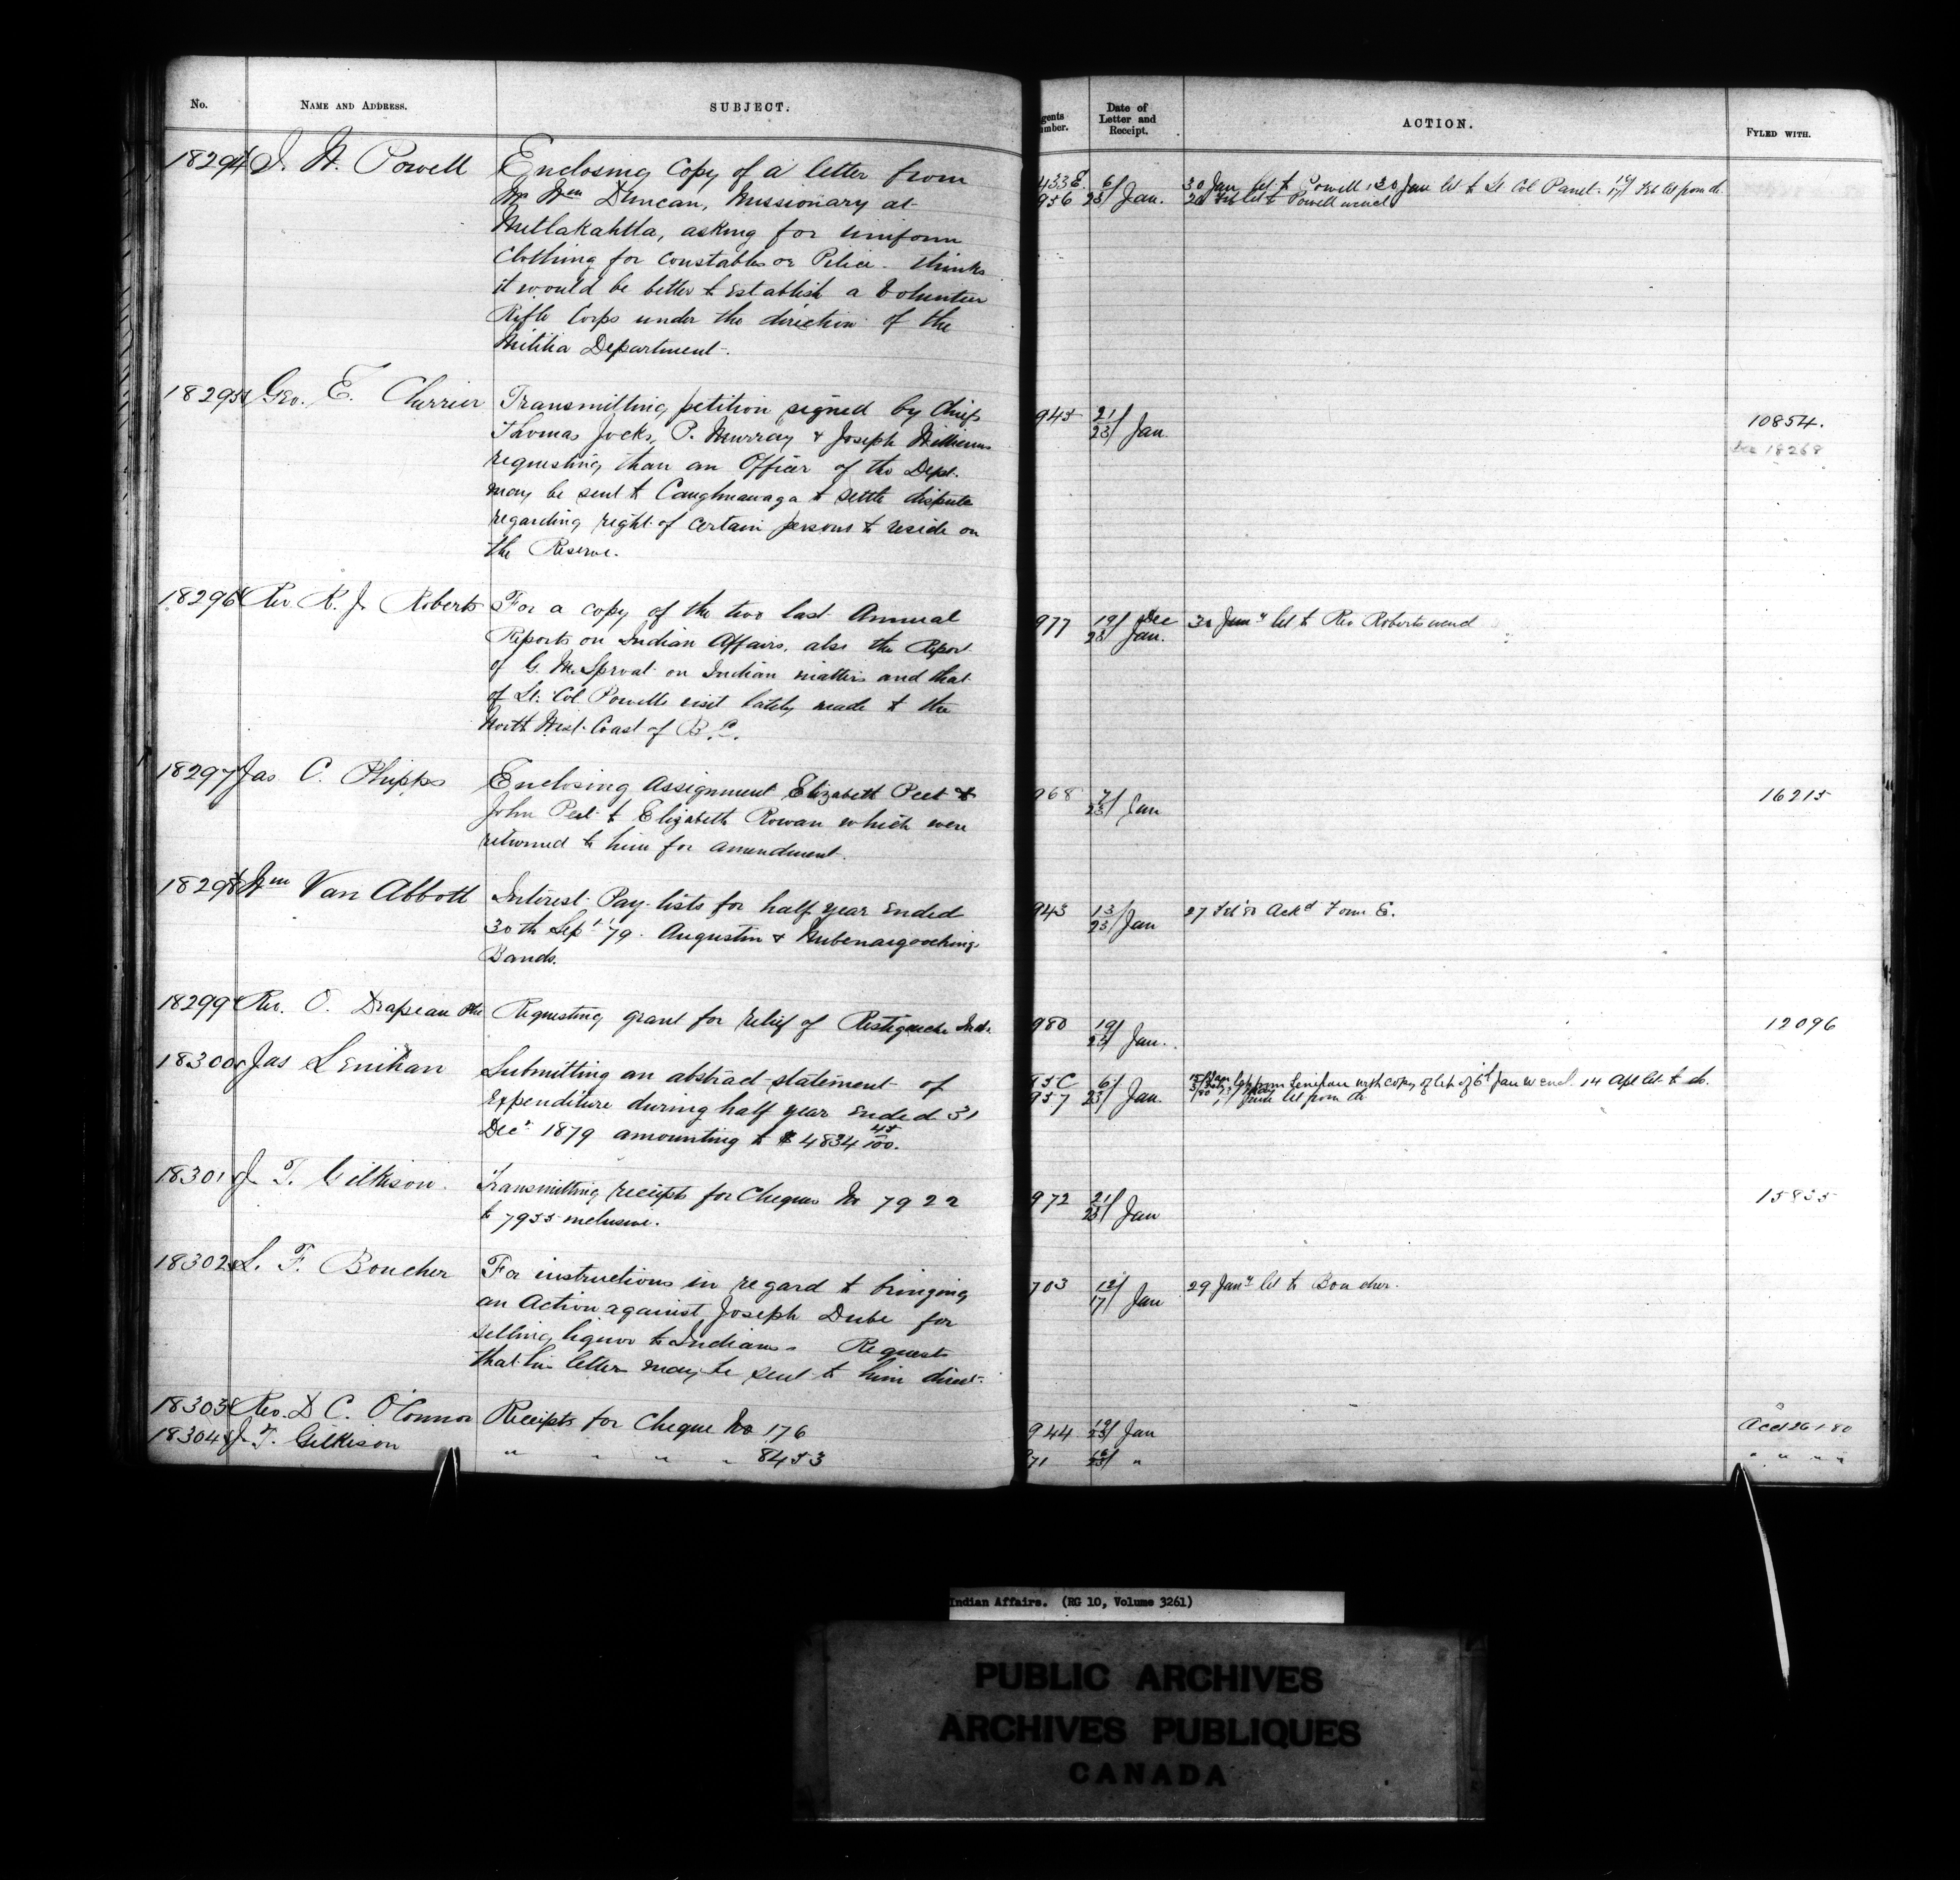 No. NAME AND ADDRESS. SUBJECT. gents umber. Date of Letter and Receipt. ACTION. FYLED WITH.
18294 I. W. Powell Enclosing copy of a letter from 433E. 6/ 30 Jan let to Powell 30 Jan let to Lt Col Panet. Feb let from do.
Mr Wm Duncan, Missionary at 956 23/ Jan. let to Powell
Metlakahtla, asking for uniform
clothing for constables or Police. thinks
it would be better to establish a Volunteer
Rifle Corps under the direction of the
Militia Department.
18295 Geo. E. Cherrier Transmitting petition signed by Chiefs 945 21/ 10854.
Thomas Jocks, P. Murray & Joseph Williams 23/ Jan 18268
requesting than an Officer of the Dept.
may be sent to Caughnawaga to settle dispute
regarding right of certain persons to reside on
the Reserve.
18296 Rev. R. J. Roberts For a copy of the two last Annual 977 19/ Dec 30 Jany let to Rev Roberts
Reports on Indian Affairs. also the Report 23/ Jan.
of G. M. Sproat on Indian matters and that
of Lt. Col. Powells visit lately made to the
North West Coast of B.C.
18297 Jas C. Phipps Enclosing Assignment Elizabeth Peet & 968 7/ 16215
John Peet to Elizabeth Rowan which were 23/ Jan
returned to him for amendment.
18298 Wm Van Abbott Interest Pay-lists for half year ended 943 13/ 27 Feb 80 Ackd Form E.
30th Sept '79. Augustin & 23/ Jan
Bands.
18299 Rev. O. Drapeau Requesting grant for relief of Restigouche Inds. 980 19/ 12096
23/ Jan.
18300 Jas Lenihan Submitting an abstract statement of 95C 6/ let from Lenihan with copy of let of 6th Jan w encl. 14 Apl let to do.
Expenditure during half year ended 31 957 23/ Jan. June let from do
Decr 1879 amounting to $4834 45/100.
18301 J. T. Gilkison. Transmitting receipts for Cheques No 7922 972 21/ 15835
to 7955 inclusive. 23/ Jan
18302 L. F. Boucher For instructions in regard to bringing 703 12/ 29 Jany let to Boucher.
an Action against Joseph Dube for 17/ Jan
selling liquor to Indians. Requests
that his letter may be sent to him direct.
18303 Rev. D C. O'Connor Receipts for Cheque No 176 944 19/23/ Jan Acct 26 1 80
18304 J. T. Gilkison " " " " 8453 971 23/ " " " " "
Indian Affairs. (RG 10, Volume 3261)
PUBLIC ARCHIVES
ARCHIVES PUBLIQUES
CANADA